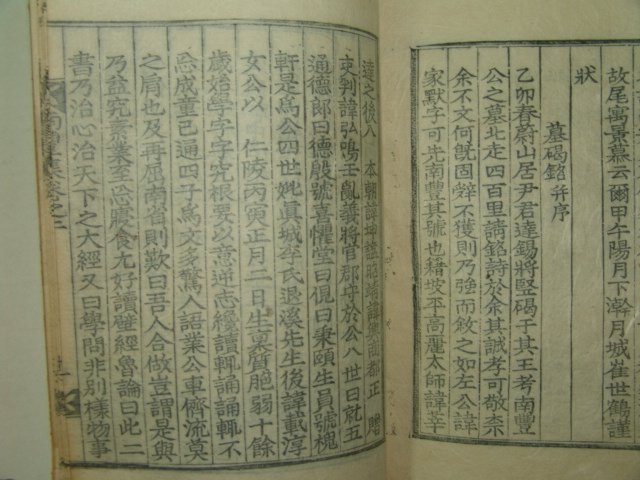 故尾寓景慕云爾甲午陽月下澣月城崔世鶴謹
狀
墓碣銘并序
乙卯春蔚山居尹君達錫將竪碣于其王考南豊
公之墓北走四百里請銘詩於余其誠孝可敬柰
余不文何旣固辤不獲則乃強而敘之如左公諱
家默字可先南豊其號也籍坡平高麗太師諱莘
達之後入 本朝諱坤諡昭靖諱 都正 贈
吏判諱弘鳴壬亂義將官郡守於公八世曰就五
通德郎曰德殷號喜懼堂曰 曰秉頤生員號槐
軒是爲公四世妣眞城李氏退溪先生後諱載淳
女公以 仁陵丙寅正月二日生 質脆弱十餘
歲始學字字究根要以意逆志纔讀輒誦誦輒不
忘成童已通四子爲文多驚人語業公車儕流莫
之肩也及再屈南省則歎曰吾人合做豈謂是與
乃益究素業至忘寢食尤好讀 經魯論曰此二
書乃治心治天下之大經又曰學問非別樣物事
卷之二